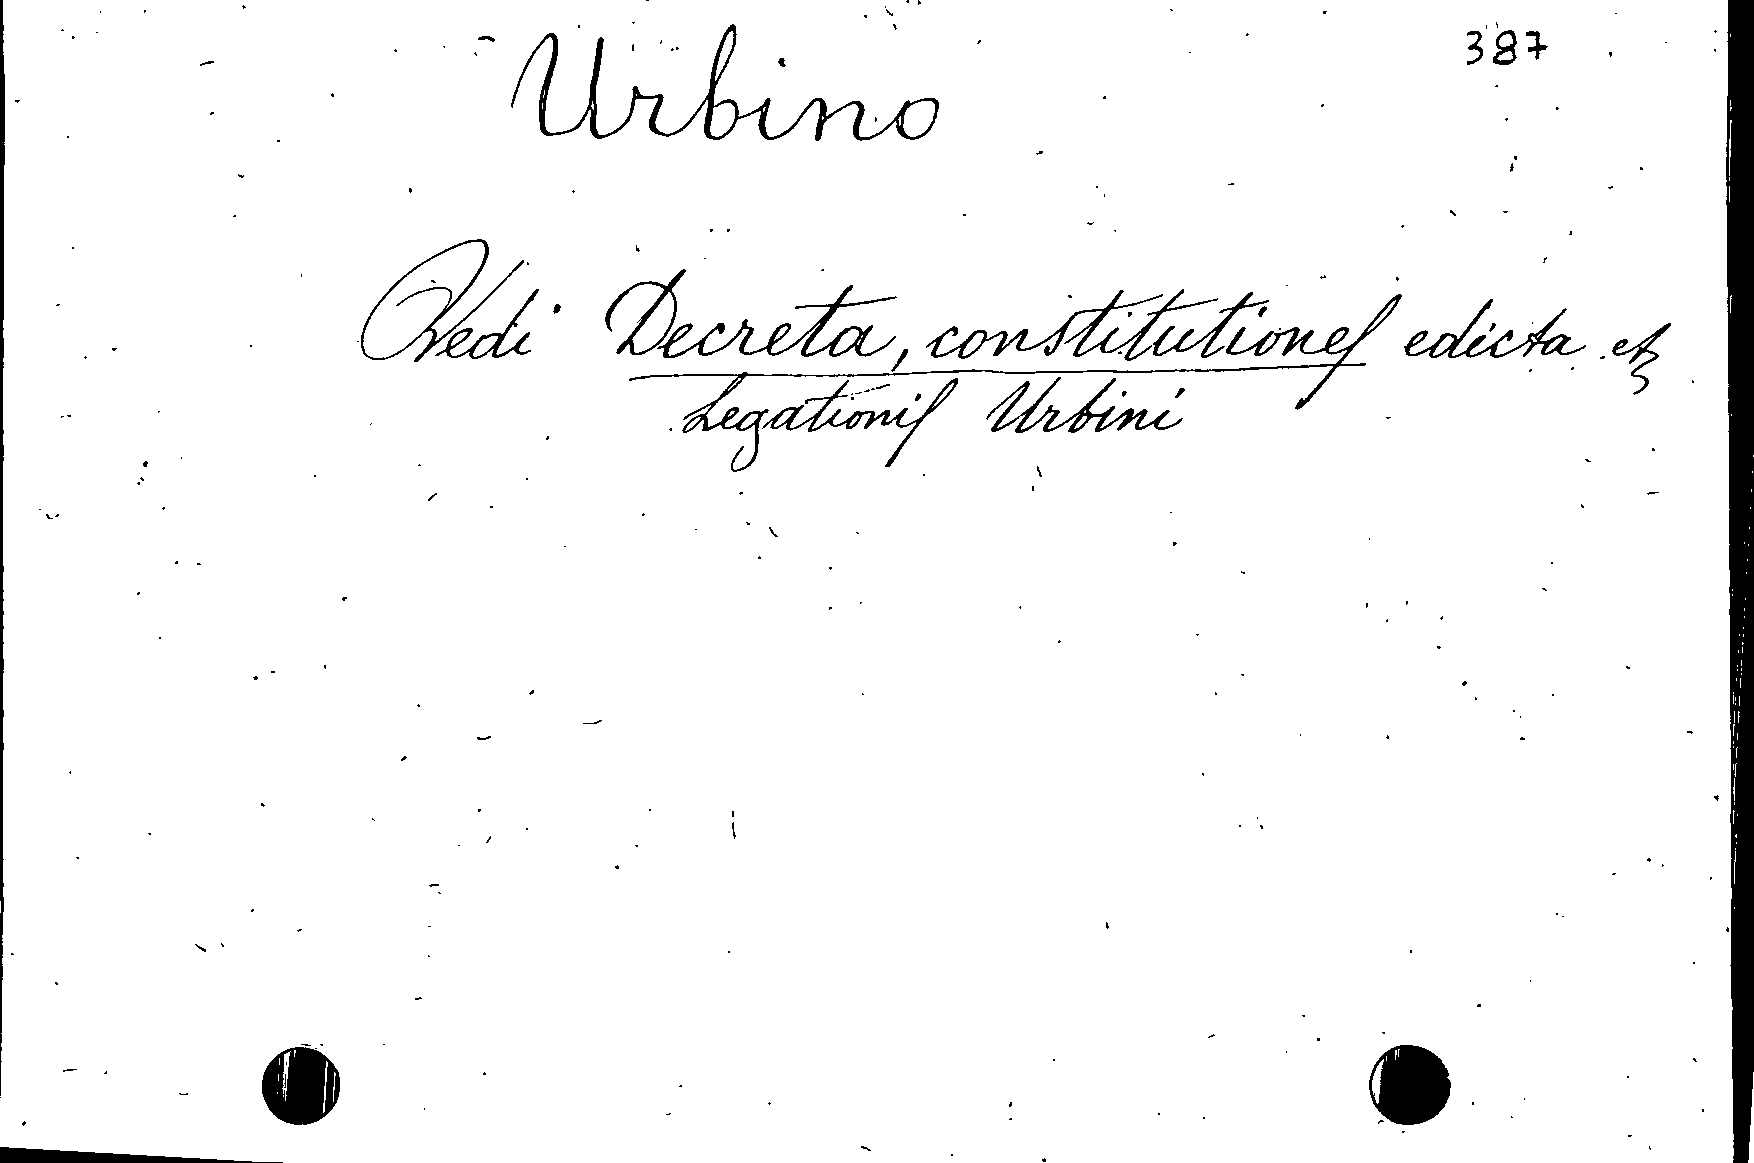 387
Urbino
Vedi Decreta, constitutiones edicta et
Legationis Urbini